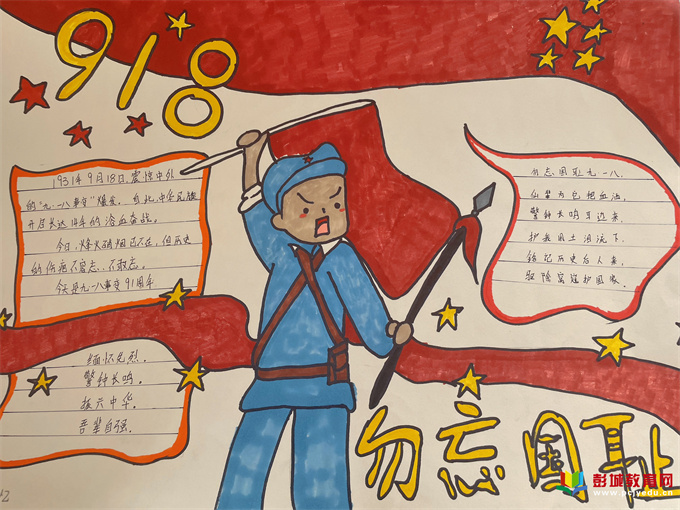 918
1931年9月18日，震惊中外
的"九·一八事变"爆发，自此，中华民族
开启长达14年的浴血奋战。
今日，烽火硝烟已不在，但历史
的伤疤不容忘、不敢忘。
今天是九一八事变91周年
缅怀先烈，
警钟长鸣，
振兴中华，
吾辈自强。
勿忘国耻九一八，
警钟长鸣耳边来，
护我国土
铭记历史后人来，
驱除寇护国家。
勿忘国耻
彭城教育网
www.pcjyedu.cn